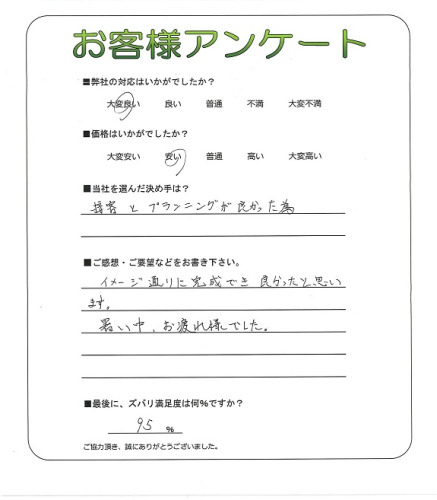 お客様アンケート
■弊社の対応はいかがでしたか?
大変良い 良い 普通 不満 大変不満
■価格はいかがでしたか?
大変安い 安い 普通 高い 大変高い
■当社を選んだ決め手は?
接客とプランニングが良かった為
■ご感想・ご要望などをお書き下さい。
イメージ通りに完成でき良かったと思い
ます。
暑い中、お疲れ様でした。
■最後に、ズバリ満足度は何%ですか?
95 %
ご協力頂き、誠にありがとうございました。